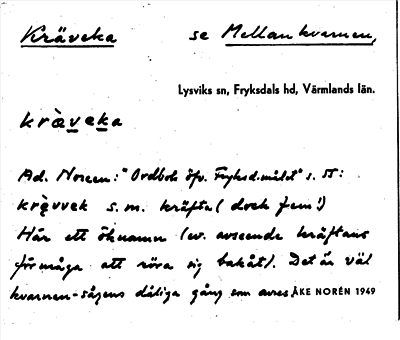 Kräveka se Mellankvarnen,
Lysviks sn, Fryksdals hd, Värmlands län.
kràveka
Ad. Noreen: "Ordbok öfv. Fryksd.målet" s. 55:
krävvek s.m. kräfta (dock fem!)
Här ett öknamn (ev. avseende kräftans
förmåga att röra sig bakåt). Det är väl
kvarnen-sågens dåliga gång som avses. ÅKE NORÉN 1949